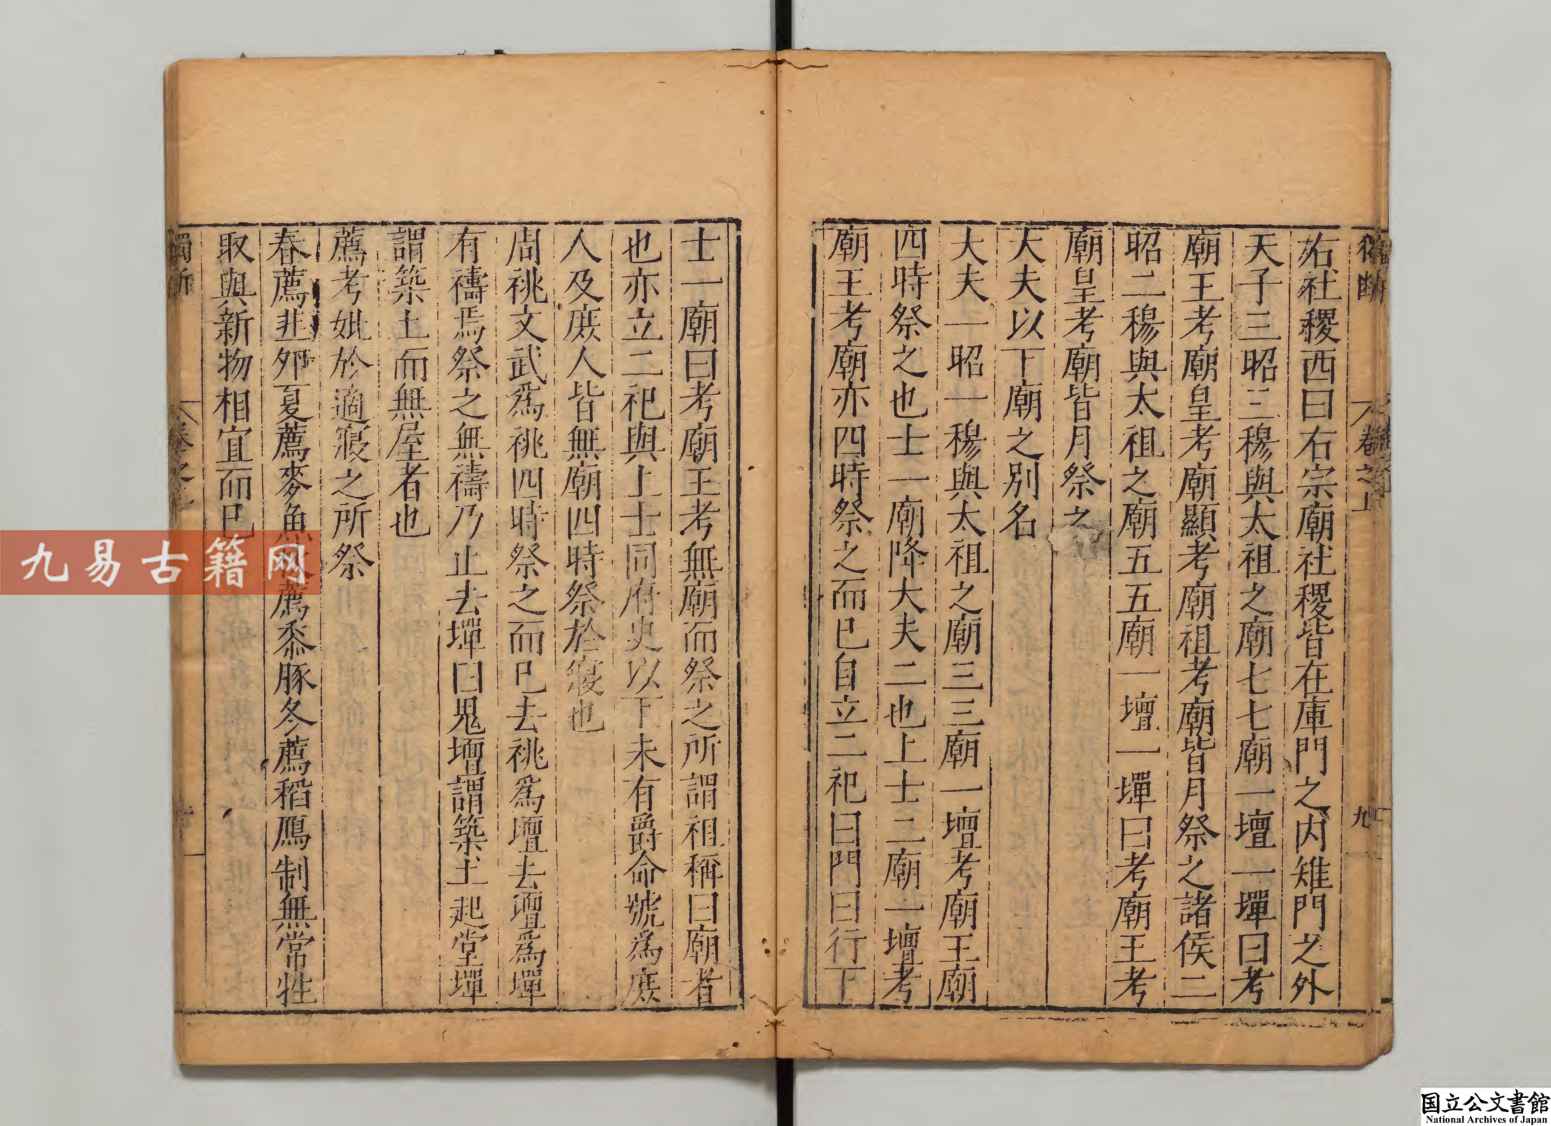 獨斷 卷之上 九
右社稷西曰右宗廟社稷皆在庫門之內雉門之外
天子三昭三穆與太祖之廟七七廟一壇一墠曰考
廟王考廟皇考廟顯考廟祖考廟皆月祭之諸侯二
昭二穆與太祖之廟五五廟一壇一墠曰考廟王考
廟皇考廟皆月祭之
大夫以下廟之別名
大夫一昭一穆與太祖之廟三三廟一壇考廟王廟
四時祭之也士一廟降大夫二也上士二廟一壇考
廟王考廟亦四時祭之而已自立二祀曰門曰行下
士一廟曰考廟王考無廟而祭之所謂祖稱曰廟者
也亦立二祀與上士同府史以下未有爵命號為庶
人及庶人皆無廟四時祭於寢也
周祧文武為祧四時祭之而已去祧為壇去壇為墠
有禱焉祭之無禱乃止去墠曰鬼壇謂築土起堂墠
謂築土而無屋者也
薦考妣於適寢之所祭
春薦韭卵夏薦麥魚薦黍豚冬薦稻鴈制無常牲
取與新物相宜而已
獨斷 卷之上
九易古籍网
国立公文書館
National Archives of Japan